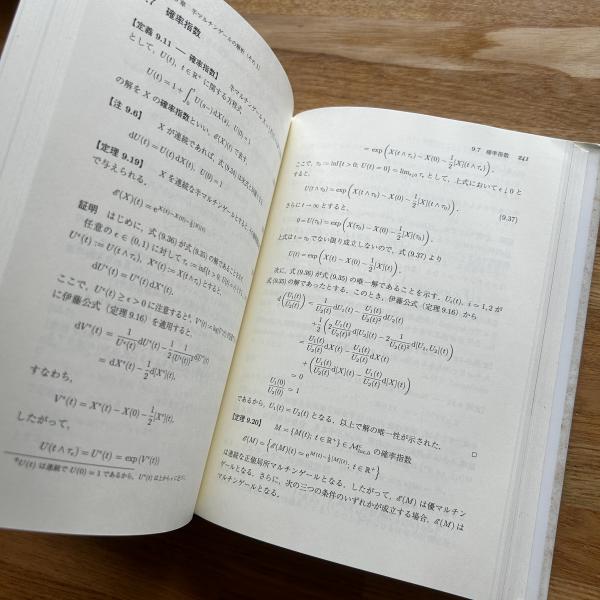 章 半マルチンゲールの解析(その1)
.7 確率指数
【定義 9.11 ― 確率指数】 半マルチンゲール
として、U(t), t ∈ R⁺ に関する方程式,
U(t) = 1 + ∫₀ᵗ U(s−)dX(s), U(0) = 1
の解を X の確率指数といい、ℰ(X)(t) で表す.
【注 9.6】 X が連続であれば, 式 (9.34)
dU(t) = U(t)dX(t), U(0) = 1
【定理 9.19】 X を連続な半マルチンゲールとする.
で与えられる.
ℰ(X)(t) = e^{X(t)−X(0)−½[X](t)}
証明 はじめに, 式 (9.36) が式 (9.35) の解であることを
任意の ε ∈ (0,1) に対して τε := inf{t > 0;
Uᵋ(t) := U(t∧τε), Xᵋ(t) := X(t∧τε) とすると,
dUᵋ(t) = Uᵋ(t)dXᵋ(t).
ここで, Uᵋ(t) ≥ ε > 0 に注意すると,
に伊藤公式 (定理 9.16) を適用すると,
dVᵋ(t) = 1/Uᵋ(t) dUᵋ(t) − ½ 1/(Uᵋ(t))² d[Uᵋ](t)
= dXᵋ(t) − ½d[Xᵋ](t),
すなわち,
Vᵋ(t) = Xᵋ(t) − X(0) − ½[Xᵋ](t).
したがって,
U(t∧τε) = Uᵋ(t) = exp(Vᵋ(t))
U(t) は連続で U(0) = 1 であるから, Uᵋ(t) は
9.7 確率指数 241
= exp(X(t∧τε) − X(0) − ½[X](t∧τε)).
ここで, τ₀ := inf{t > 0; U(t) = 0} = lim_{ε↓0} τε として, 上式において ε↓0 と
すると,
U(t∧τ₀) = exp(X(t∧τ₀) − X(0) − ½[X](t∧τ₀)). (9.37)
さらに t → ∞ とすると,
0 = U(τ₀) = exp(X(τ₀) − X(0) − ½[X](τ₀)).
上式は t = τ₀ でない限り成立しないので, 式 (9.37) より
U(t) = exp(X(t) − X(0) − ½[X](t)).
次に, 式 (9.36) が式 (9.35) の唯一解であることを示す. Uᵢ(t), i = 1, 2 が
式 (9.35) の解であったとする. このとき, 伊藤公式 (定理 9.16) から
d(U₁(t)/U₂(t)) = 1/U₂(t) dU₁(t) − U₁(t)/U₂(t)² dU₂(t)
+½(2 U₁(t)/U₂(t)³ d[U₂](t) − 2 1/U₂(t)² d[U₁,U₂](t))
= U₁(t)/U₂(t) dX(t) − U₁(t)/U₂(t) dX(t)
+ (U₁(t)/U₂(t) d[X](t) − U₁(t)/U₂(t) d[X](t))
= 0
U₁(0)/U₂(0) = 1
であるから, U₁(t) = U₂(t) となる. 以上で解の唯一性が示された. □
【定理 9.20】 M = {M(t); t ∈ R⁺} ∈ の確率指数
ℰ(M) = {ℰ(M)(t) = e^{M(t)−½[M](t)}; t ∈ R⁺}
は連続な正値局所マルチンゲールとなる. したがって, ℰ(M) は優マルチン
ゲールとなる. さらに, 次の三つの条件のいずれかが成立する場合, ℰ(M) は
マルチンゲールとなる.